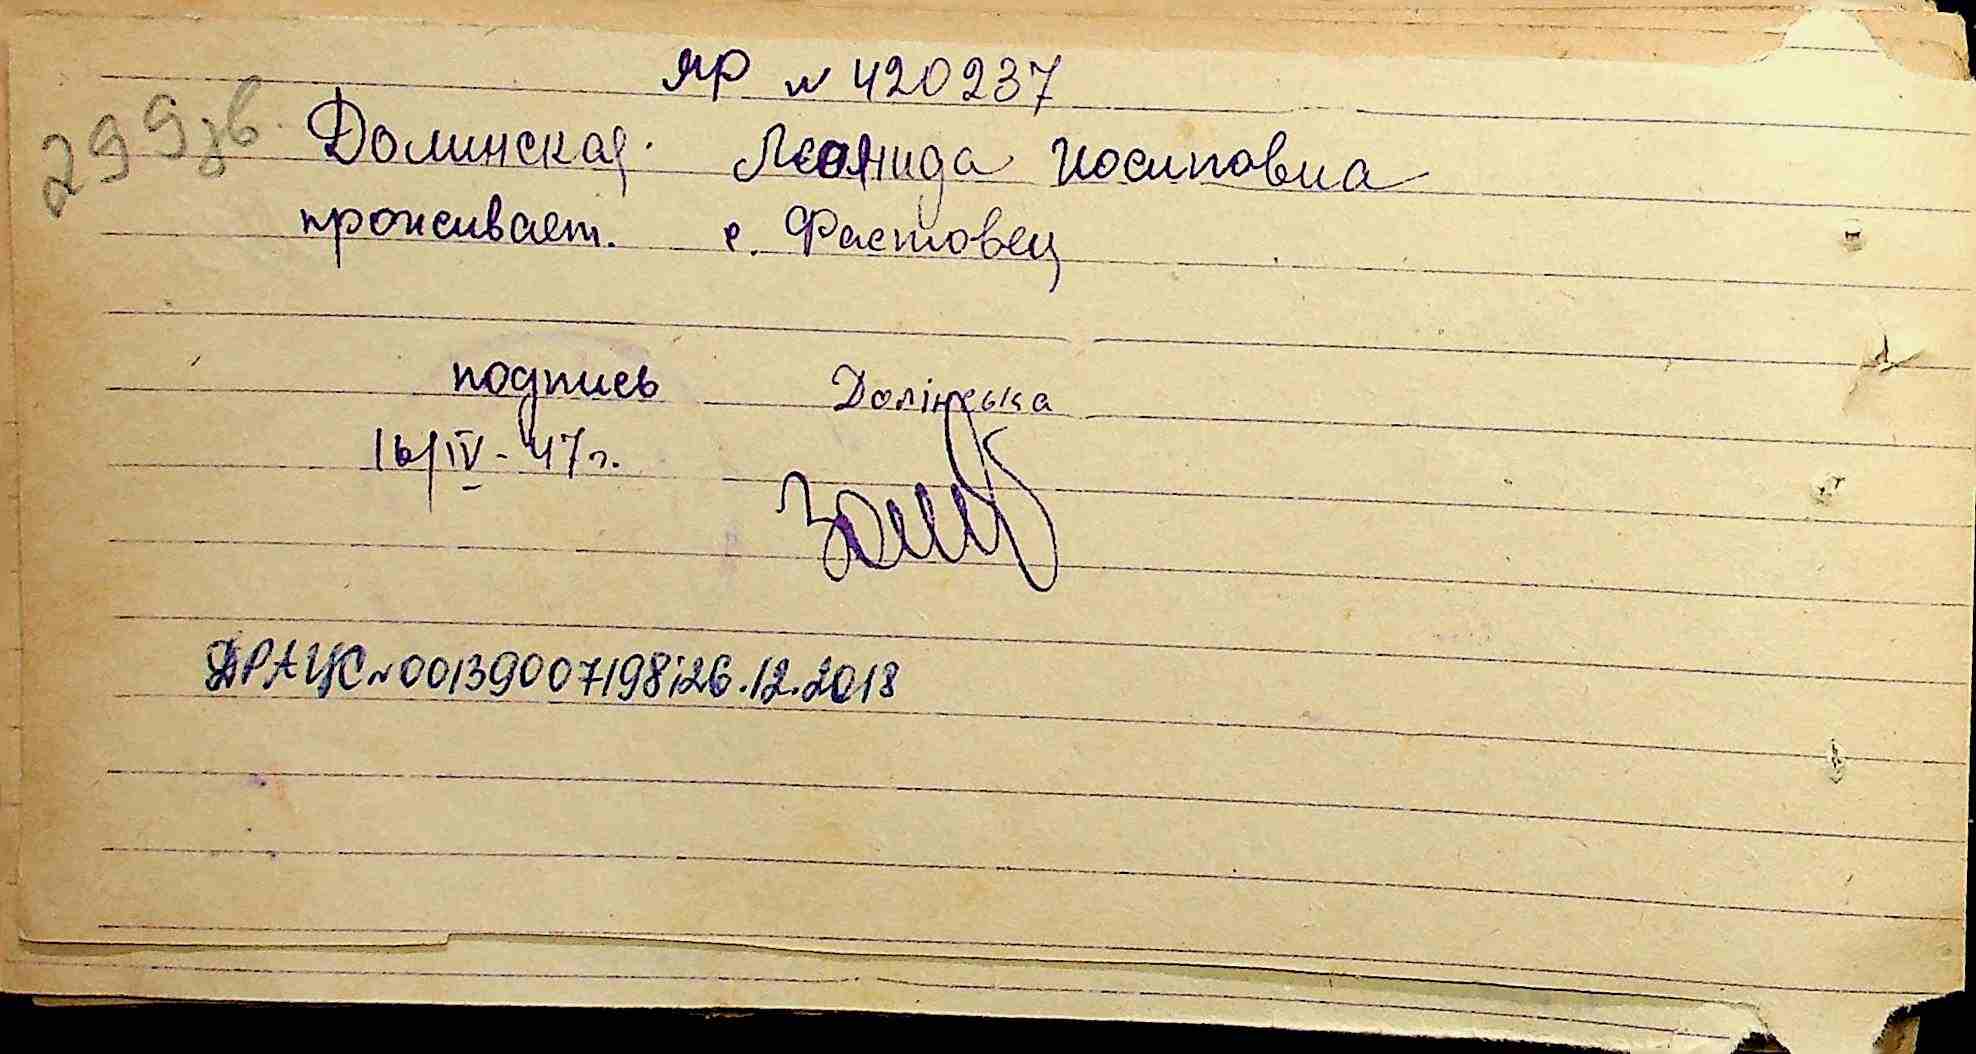 ЯР № 420237
299зв.
Долинская Леонида Иосиповна
проживает. с. Фастовец
подпись Долінська
16/IV - 47 г.
ДРАЦС №00139007198; 26.12.2018